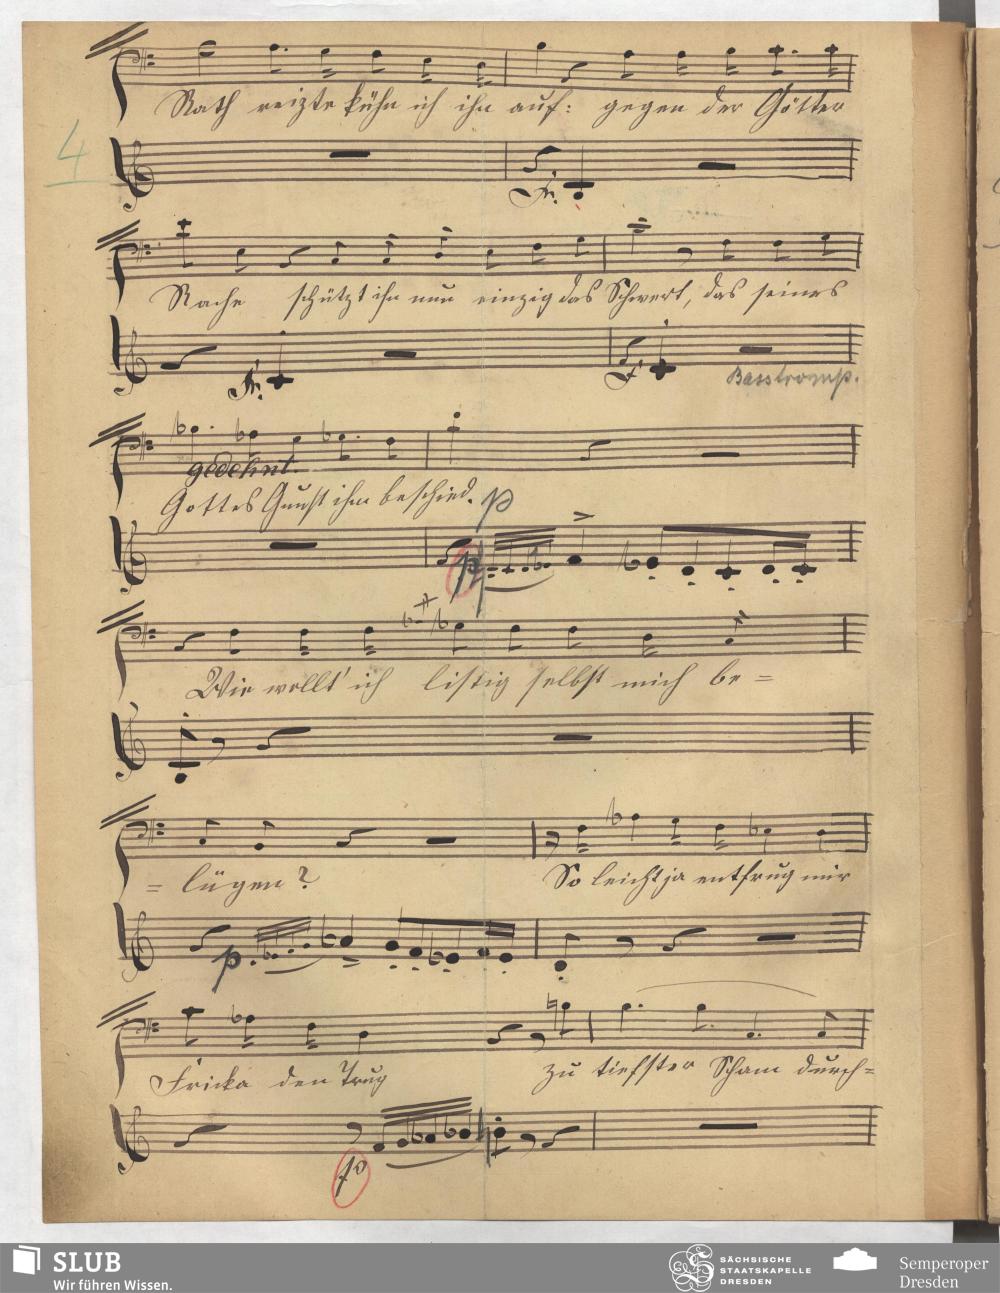 Rath reizte kühn ich ihn auf: gegen der Götter
4
Fr.
Rache schützt ihn nun einzig das Schwert, das seines
Fr.
Fr.
Basstromp.
gedehnt.
Gottes Gunst ihm beschied.
p
p
Wie wollt' ich listig selbst mich be=
=lügen?
So leicht ja entfrug mir
p.
Fricka den Trug
zu tiefster Scham durch=
p
SLUB
Wir führen Wissen.
SÄCHSISCHE
STAATSKAPELLE
DRESDEN
Semperoper
Dresden